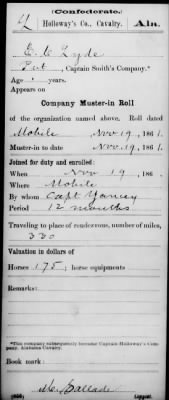 (Confederate.)
Holloway's Co., Cavalry. Ala.
Pvt, Captain Smith's Company.*
Age years.
Appears on
Company Muster-in Roll
of the organization named above. Roll dated
Mobile Nov 19, 1861.
Muster-in to date Nov. 19, 1861.
Joined for duty and enrolled:
When Nov 19, 186 .
Where Mobile
By whom Capt Yancey
Period 12 months
Traveling to place of rendezvous, number of miles,
330
Valuation in dollars of
Horses 175; horse equipments
Remarks:
*This company subsequently became Captain Holloway's Company, Alabama Cavalry.
Book mark:
Copyist.